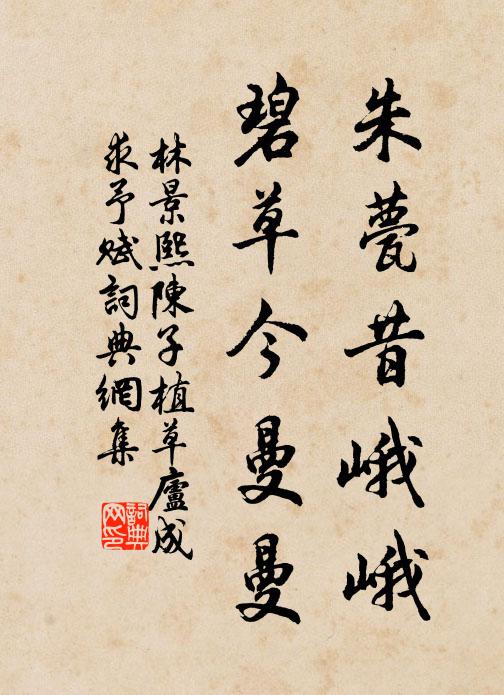 朱甍昔峨峨
碧草今曼曼
林景熙陳子植草廬成
求予賦詞典網集
詞典网印